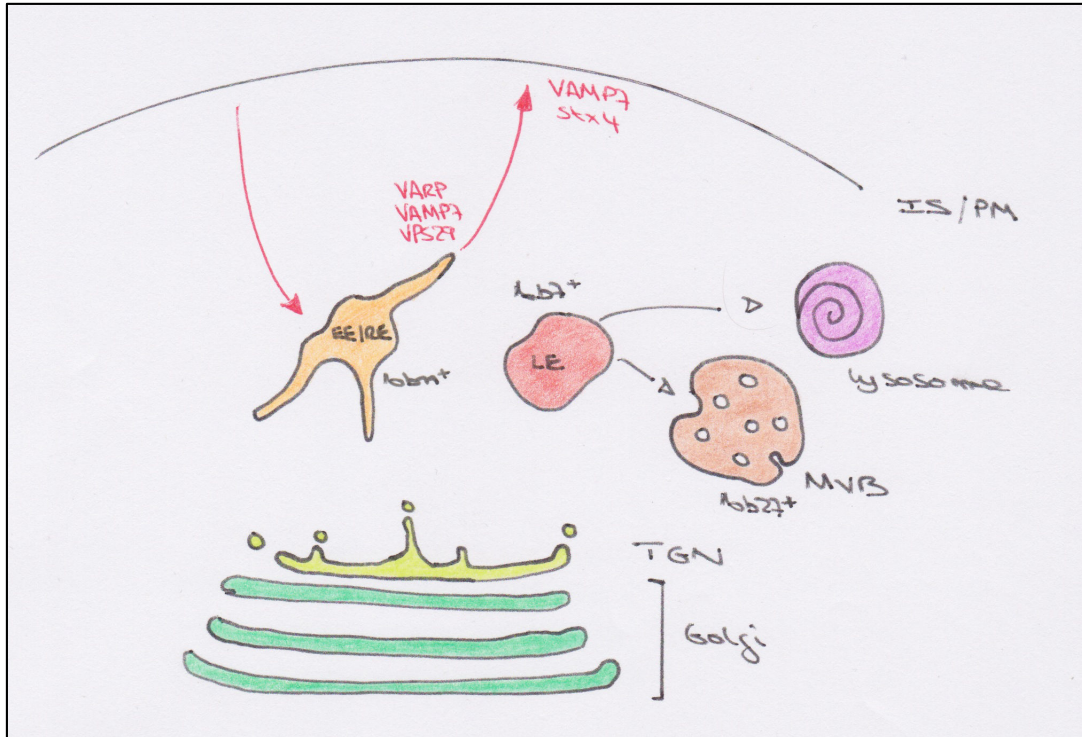 VAMP7
Stx4
VARP
VAMP7
VPS29
IS/PM
Rab7+
EE/RE
LE
Rab11+
lysosome
MVB
Rab27+
TGN
Golgi